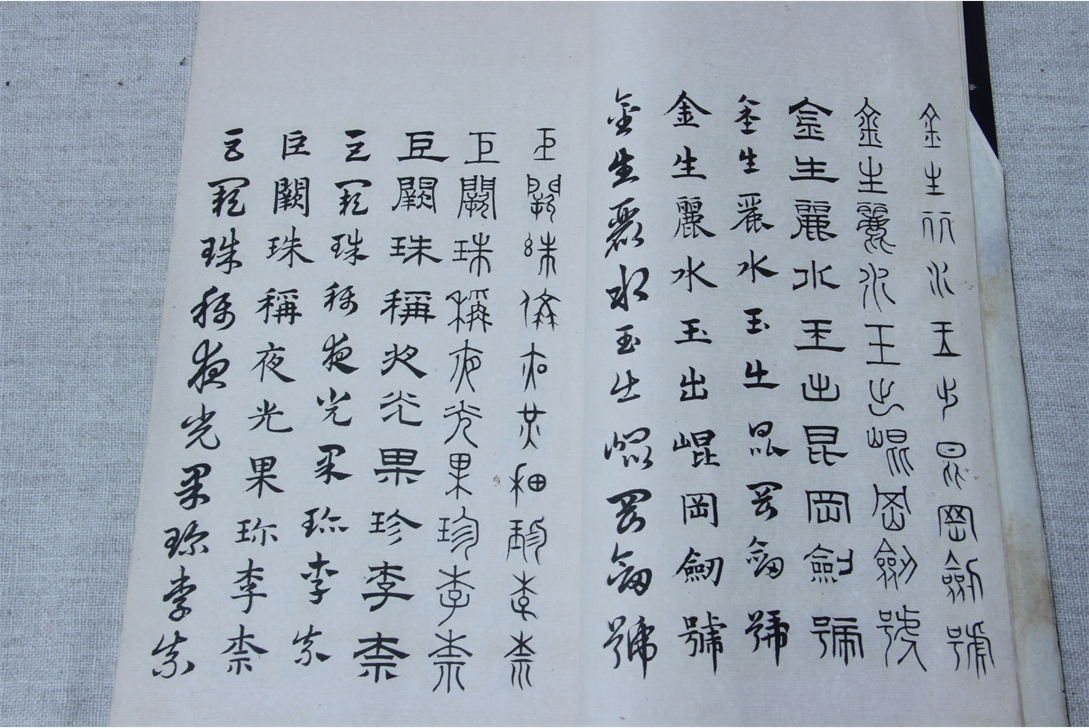 金生麗水玉出昆岡劍號
金生麗水玉出崐岡劍號
金生麗水玉出昆岡劍號
金生麗水玉出昆岡劒號
金生麗水玉出崐岡劒號
金生麗水玉出崐岡劒號
巨闕珠稱夜光果珍李柰
巨闕珠稱夜光果珍李柰
巨闕珠稱夜光果珍李柰
巨闕珠稱夜光果珍李柰
巨闕珠稱夜光果珎李柰
巨闕珠稱夜光果珎李柰